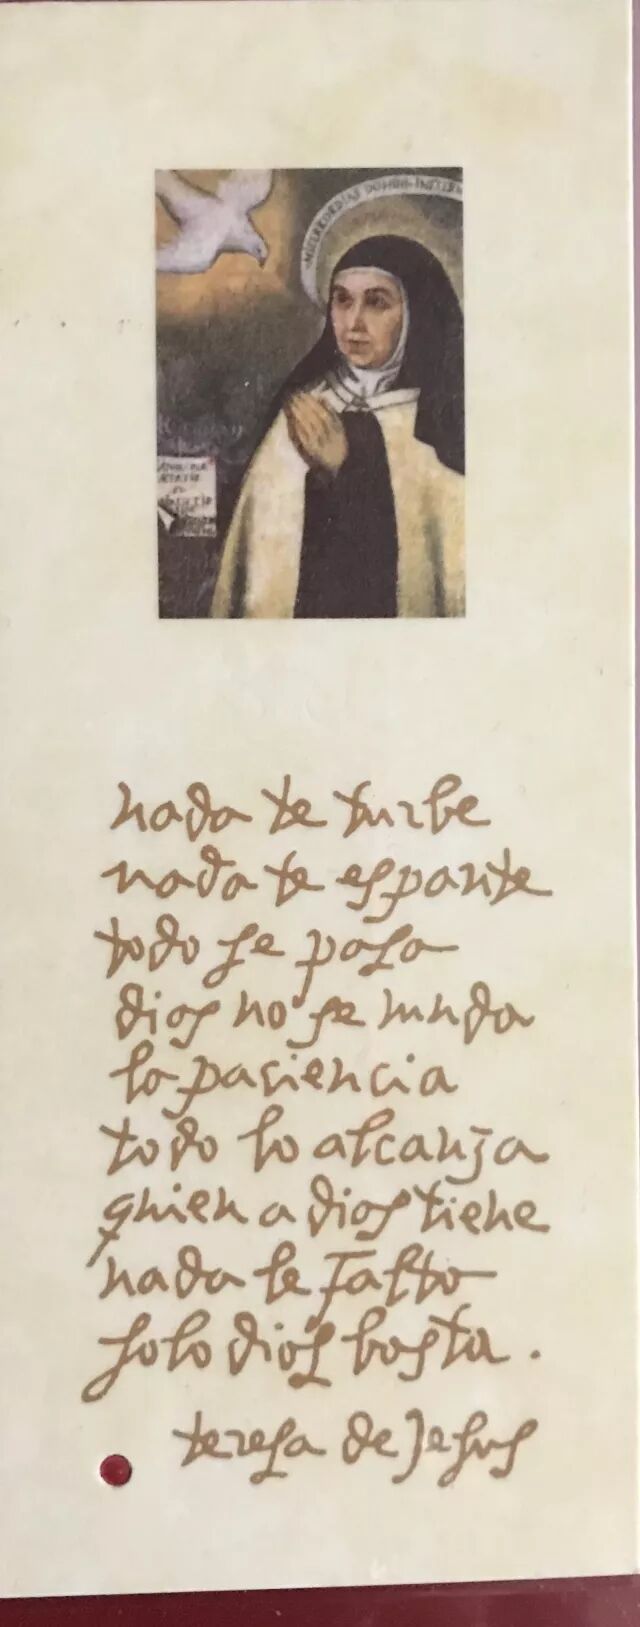 MISERICORDIAS DOMINI
nada te turbe
nada te espante
todo se pasa
dios no se muda
la paciencia
todo lo alcanza
quien a dios tiene
nada le falta
solo dios basta.
teresa de Jesus